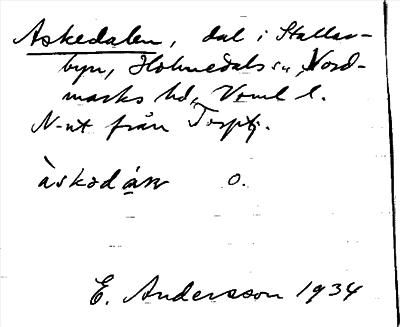 Askedalen, dal i Stallar-
byn, Holmedals sn, Nord-
marks hd, Vrml l.
N-ut från Torptj.
àskədáɴ o.
E. Andersson 1934